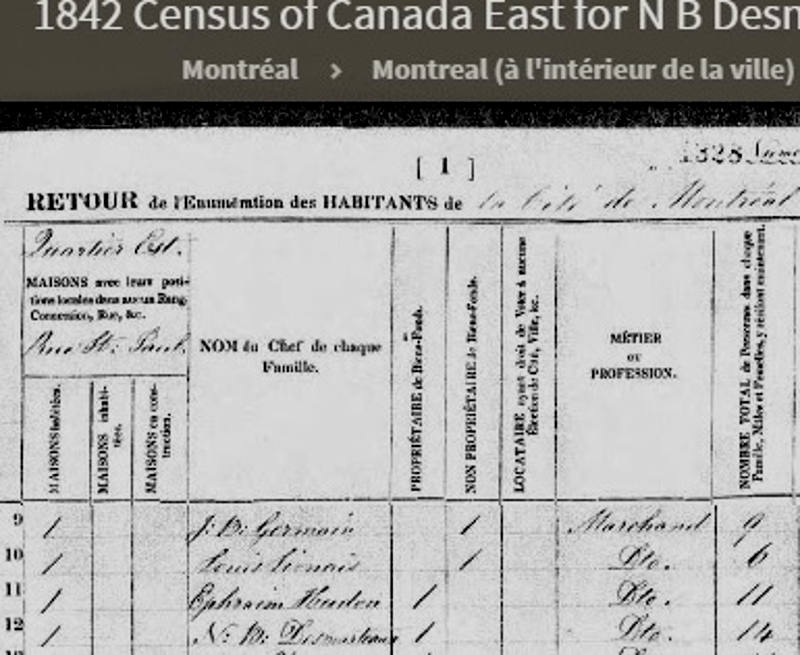 1842 Census of Canada East for N B Desm
Montréal > Montreal (à l'intérieur de la ville)
1328
[ 1 ]
RETOUR de l'Enumération des HABITANTS de la Cité de Montréal
Quartier Est.
MAISONS avec leurs posi-
tions locales dans aucun Rang,
Concession, Rue, &c.
Rue St. Paul.
MAISONS habitées.
MAISONS inhabi-
tées.
MAISONS en cons-
truction.
NOM du Chef de chaque
Famille.
PROPRIÉTAIRE de Biens-Fonds.
NON PROPRIÉTAIRE de Biens-Fonds.
LOCATAIRE ayant droit de Voter à aucune
Election de Cité, Ville, &c.
MÉTIER
OU
PROFESSION.
NOMBRE TOTAL de Personnes dans chaque
Famille, Mâles et Femelles, y résidant maintenant.
9 1 J: B: Germain 1 Marchand 9
10 1 Louis 1 Dto. 6
11 1 Ephraim Hudon 1 Dto. 11
12 1 N: B: Desmarteau 1 Dto. 14